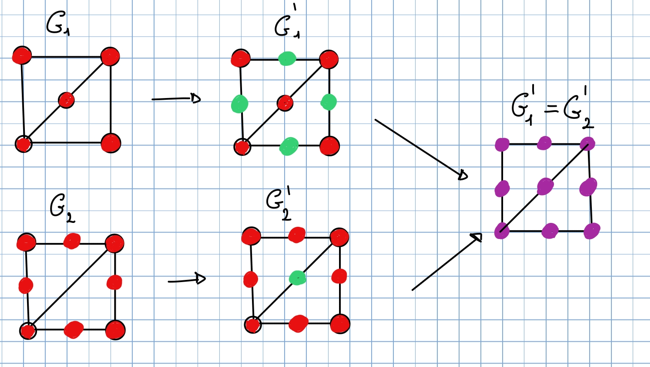 G₁
G₁'
G₁' = G₂'
G₂
G₂'